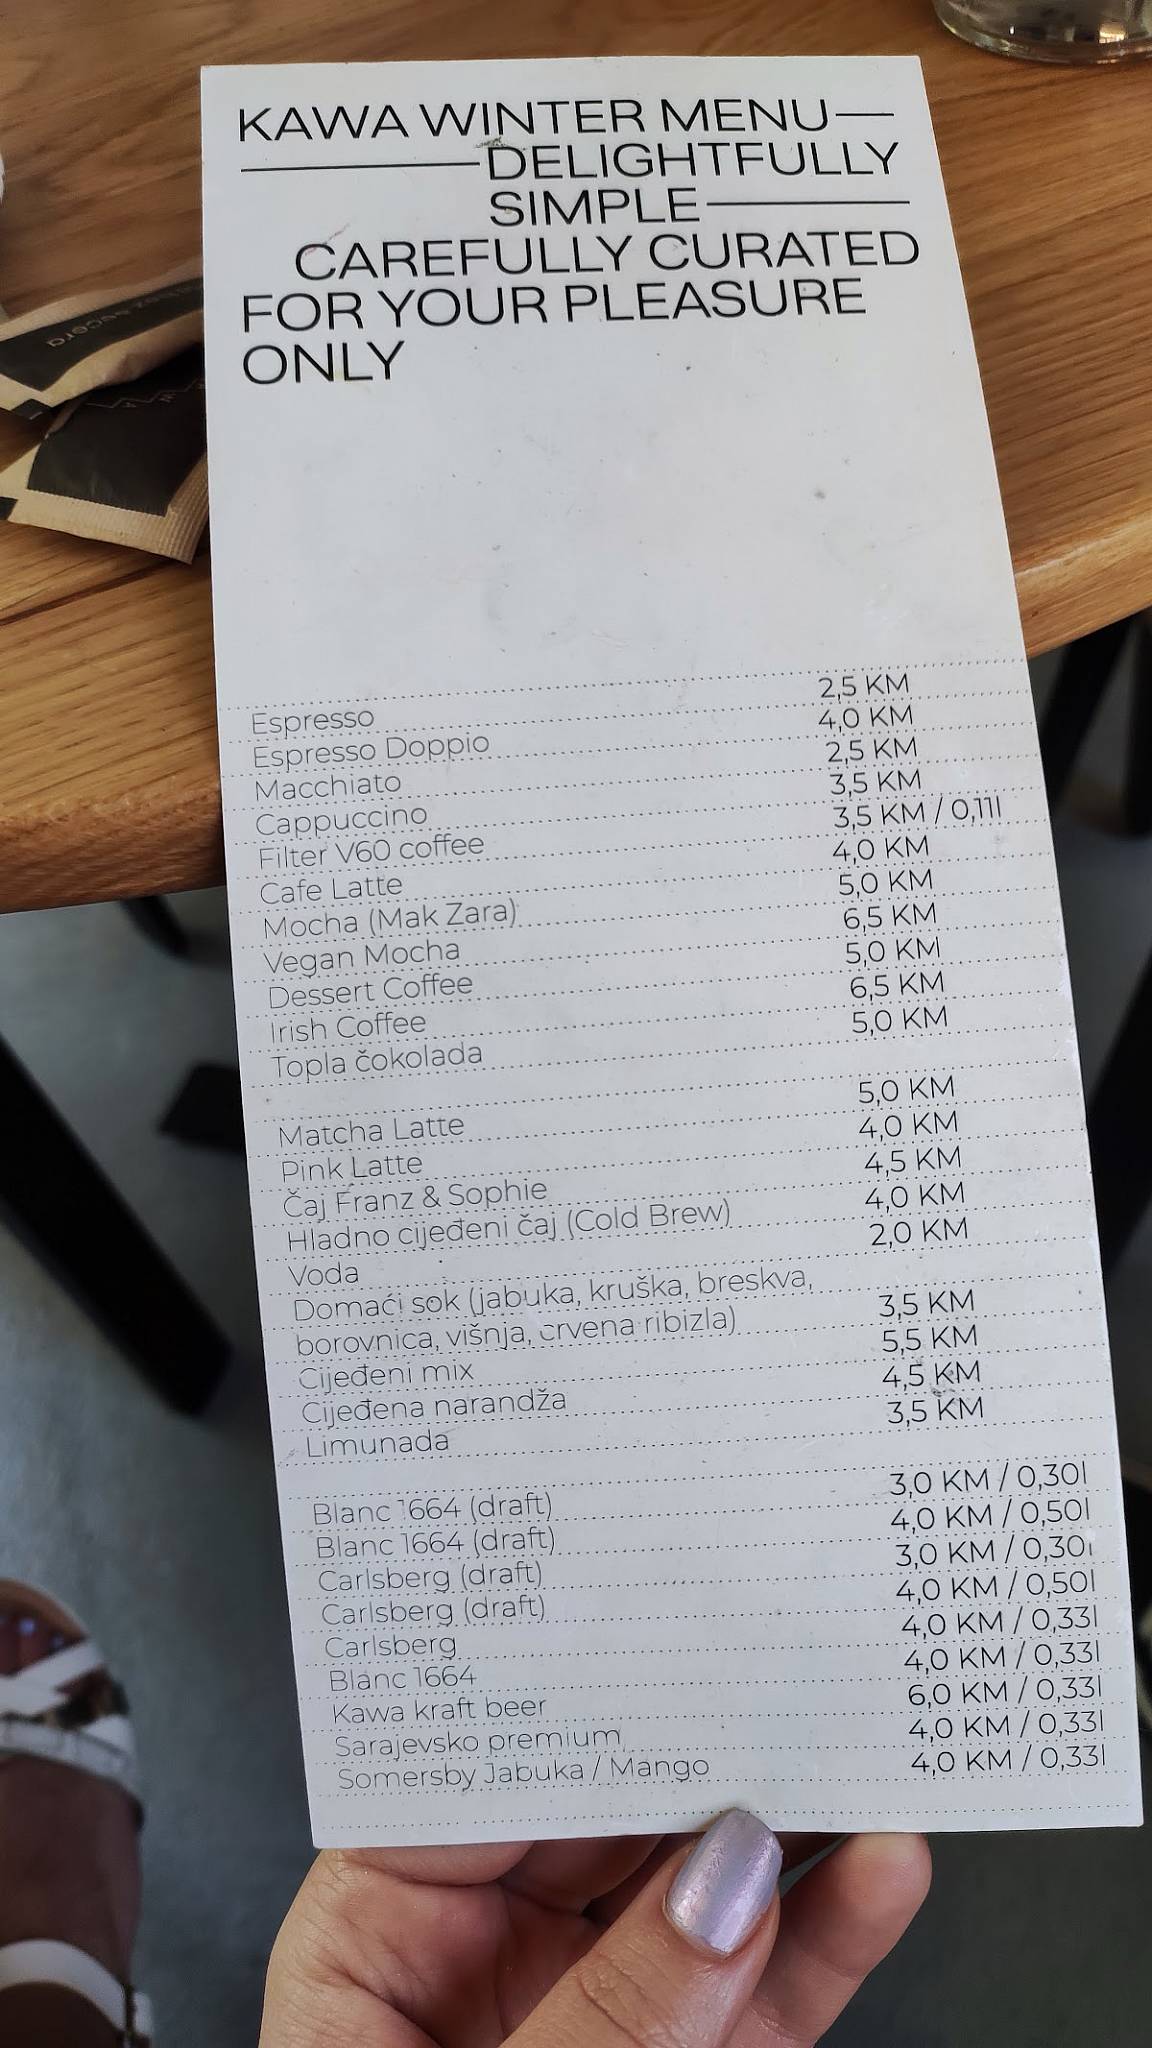 KAWA WINTER MENU—
—DELIGHTFULLY
SIMPLE—
CAREFULLY CURATED
FOR YOUR PLEASURE
ONLY
Espresso 2,5 KM
Espresso Doppio 4,0 KM
Macchiato 2,5 KM
Cappuccino 3,5 KM
Filter V60 coffee 3,5 KM / 0,11l
Cafe Latte 4,0 KM
Mocha (Mak Zara) 5,0 KM
Vegan Mocha 6,5 KM
Dessert Coffee 5,0 KM
Irish Coffee 6,5 KM
Topla čokolada 5,0 KM
Matcha Latte 5,0 KM
Pink Latte 4,0 KM
Čaj Franz & Sophie 4,5 KM
Hladno cijeđeni čaj (Cold Brew) 4,0 KM
Voda 2,0 KM
Domaći sok (jabuka, kruška, breskva,
borovnica, višnja, crvena ribizla) 3,5 KM
Cijeđeni mix 5,5 KM
Cijeđena narandža 4,5 KM
Limunada 3,5 KM
Blanc 1664 (draft) 3,0 KM / 0,30l
Blanc 1664 (draft) 4,0 KM / 0,50l
Carlsberg (draft) 3,0 KM / 0,30l
Carlsberg (draft) 4,0 KM / 0,50l
Carlsberg 4,0 KM / 0,33l
Blanc 1664 4,0 KM / 0,33l
Kawa kraft beer 6,0 KM / 0,33l
Sarajevsko premium 4,0 KM / 0,33l
Somersby Jabuka / Mango 4,0 KM / 0,33l